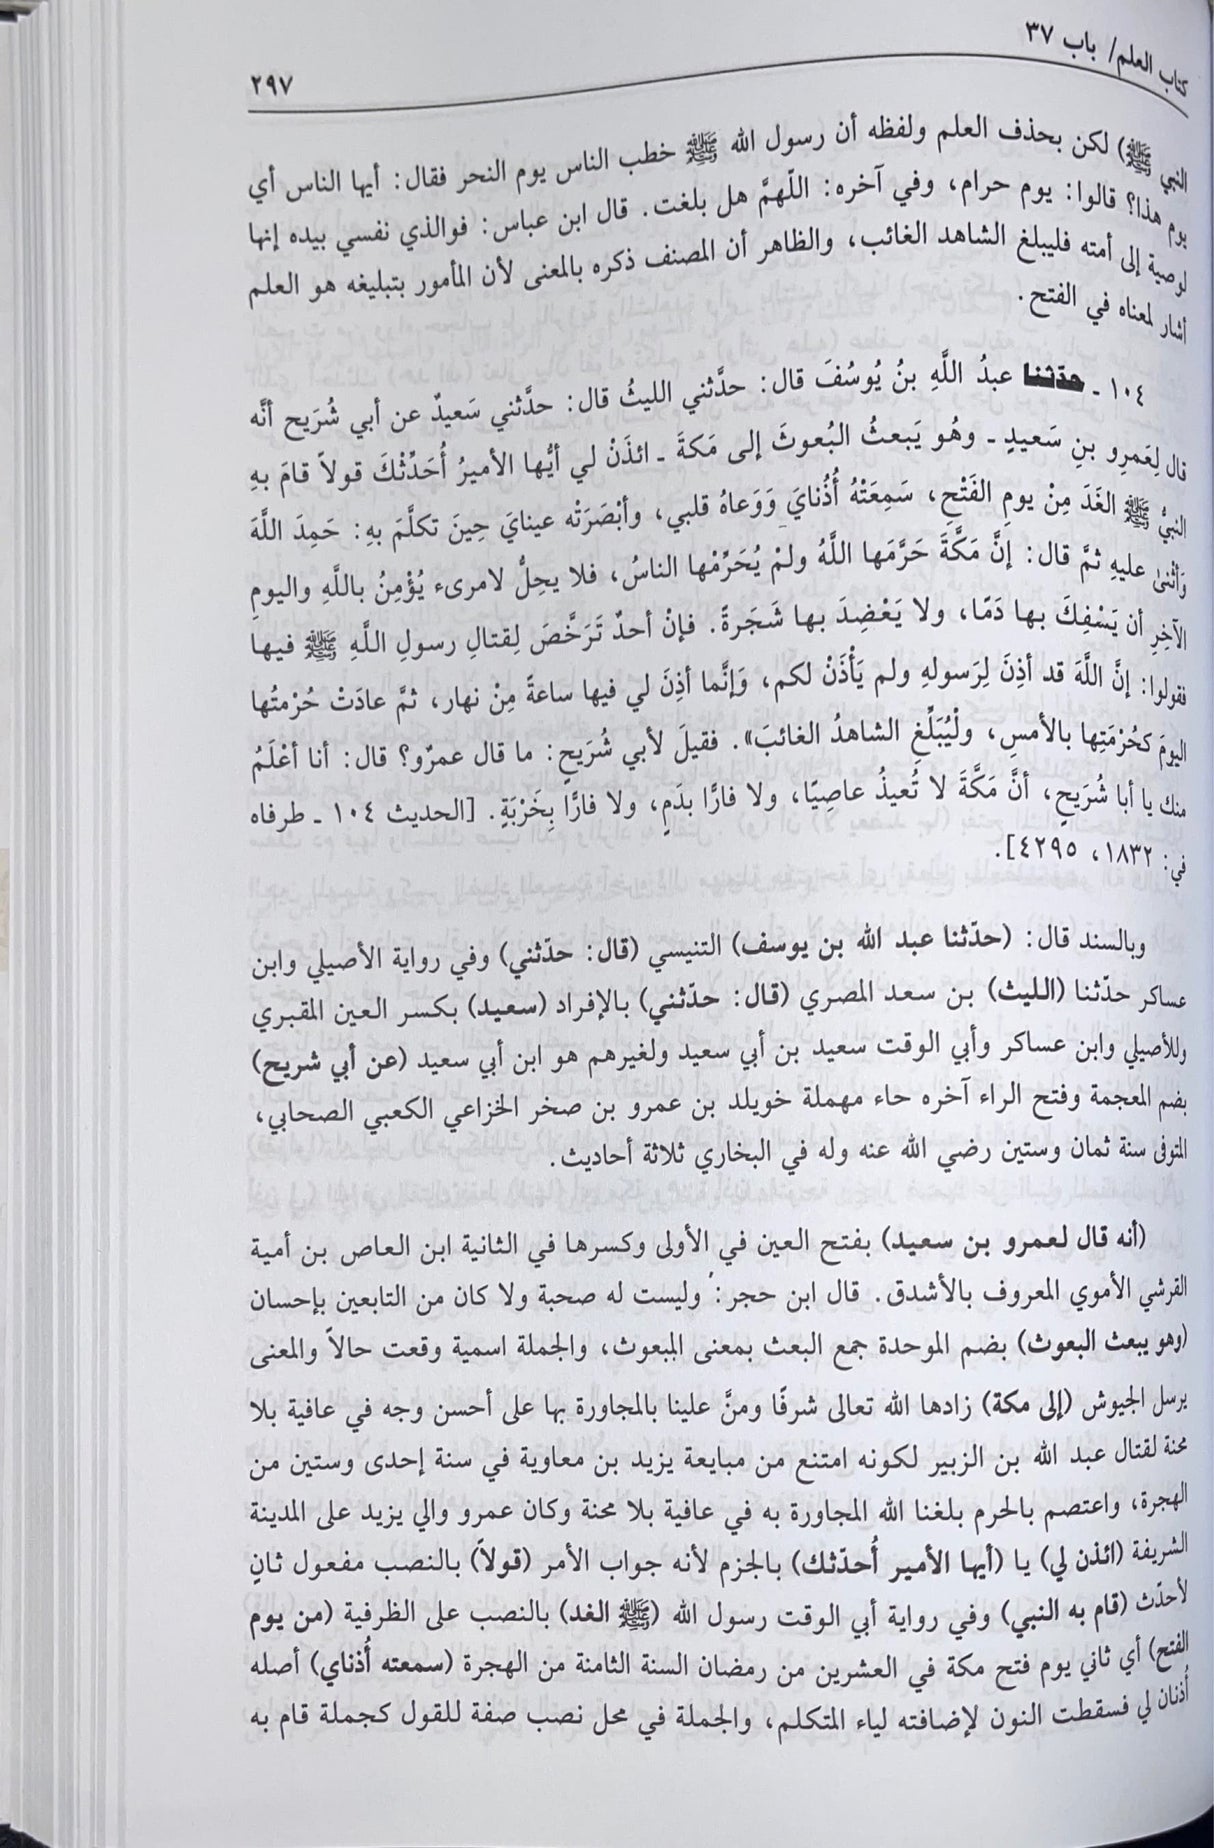 كتاب العلم/ باب ٣٧
٢٩٧
النبي ﷺ) لكن بحذف العلم ولفظه أن رسول الله ﷺ خطب الناس يوم النحر فقال: أيها الناس أي
يوم هذا؟ قالوا: يوم حرام، وفي آخره: اللّهمَّ هل بلغت. قال ابن عباس: فوالذي نفسي بيده إنها
لوصية إلى أمته فليبلغ الشاهد الغائب، والظاهر أن المصنف ذكره بالمعنى لأن المأمور بتبليغه هو العلم
أشار لمعناه في الفتح.
١٠٤ ـ حدّثنا عبدُ اللَّهِ بنُ يُوسُفَ قال: حدَّثني الليثُ قال: حدَّثني سَعيدٌ عن أبي شُرَيح أنَّه
قال لِعَمرِو بنِ سَعيدٍ ـ وهُو يَبعثُ البُعوثَ إلى مَكةَ ـ ائذَنْ لي أيُّها الأميرُ أُحَدِّثْكَ قولاً قامَ بهِ
النبيُّ ﷺ الغَدَ مِنْ يومِ الفَتْحِ، سَمِعَتْهُ أُذُنايَ وَوَعاهُ قلبي، وأبْصَرَتْه عينايَ حِينَ تكلَّمَ بهِ: حَمِدَ اللَّهَ
وَأثنىٰ عليهِ ثمَّ قال: إنَّ مَكَّةَ حَرَّمَها اللَّهُ ولمْ يُحَرِّمْها الناسُ، فلا يحِلُّ لامرىء يُؤْمِنُ باللَّهِ واليومِ
الآخِرِ أن يَسْفِكَ بها دَمًا، ولا يَعْضِدَ بها شَجَرةً. فإنْ أحدٌ تَرَخَّصَ لِقتالِ رسولِ اللَّهِ ﷺ فيها
فقولوا: إنَّ اللَّهَ قد أذِنَ لِرَسولهِ ولم يَأْذَنْ لكم، وَإنَّما أذِنَ لي فيها ساعةً مِنْ نهار، ثمَّ عادَتْ حُرْمتُها
اليومَ كحُرْمَتِها بالأمسِ، ولْيُبَلِّغِ الشاهدُ الغائبَ». فقيلَ لأبي شُرَيحٍ: ما قال عمرٌو؟ قال: أنا أعْلَمُ
منك يا أبا شُرَيحٍ، أنَّ مَكَّةَ لا تُعيذُ عاصِيًا، ولا فارًّا بدَمٍ، ولا فارًّا بِخَرْبَةٍ. [الحديث ١٠٤ ـ طرفاه
في: ١٨٣٢، ٤٢٩٥].
وبالسند قال: (حدّثنا عبد الله بن يوسف) التنيسي (قال: حدّثني) وفي رواية الأصيلي وابن
عساكر حدّثنا (الليث) بن سعد المصري (قال: حدّثني) بالإفراد (سعيد) بكسر العين المقبري
وللأصيلي وابن عساكر وأبي الوقت سعيد بن أبي سعيد ولغيرهم هو ابن أبي سعيد (عن أبي شريح)
بضم المعجمة وفتح الراء آخره حاء مهملة خويلد بن عمرو بن صخر الخزاعي الكعبي الصحابي،
المتوفى سنة ثمان وستين رضي الله عنه وله في البخاري ثلاثة أحاديث.
(أنه قال لعمرو بن سعيد) بفتح العين في الأولى وكسرها في الثانية ابن العاص بن أمية
القرشي الأموي المعروف بالأشدق. قال ابن حجر: وليست له صحبة ولا كان من التابعين بإحسان
(وهو يبعث البعوث) بضم الموحدة جمع البعث بمعنى المبعوث، والجملة اسمية وقعت حالاً والمعنى
يرسل الجيوش (إلى مكة) زادها الله تعالى شرفًا ومنَّ علينا بالمجاورة بها على أحسن وجه في عافية بلا
محنة لقتال عبد الله بن الزبير لكونه امتنع من مبايعة يزيد بن معاوية في سنة إحدى وستين من
الهجرة، واعتصم بالحرم بلغنا الله المجاورة به في عافية بلا محنة وكان عمرو والي يزيد على المدينة
الشريفة (ائذن لي) يا (أيها الأمير أُحدّثك) بالجزم لأنه جواب الأمر (قولاً) بالنصب مفعول ثانٍ
لأحدّث (قام به النبي) وفي رواية أبي الوقت رسول الله (ﷺ الغد) بالنصب على الظرفية (من يوم
الفتح) أي ثاني يوم فتح مكة في العشرين من رمضان السنة الثامنة من الهجرة (سمعته أُذناي) أصله
أُذنان لي فسقطت النون لإضافته لياء المتكلم، والجملة في محل نصب صفة للقول كجملة قام به